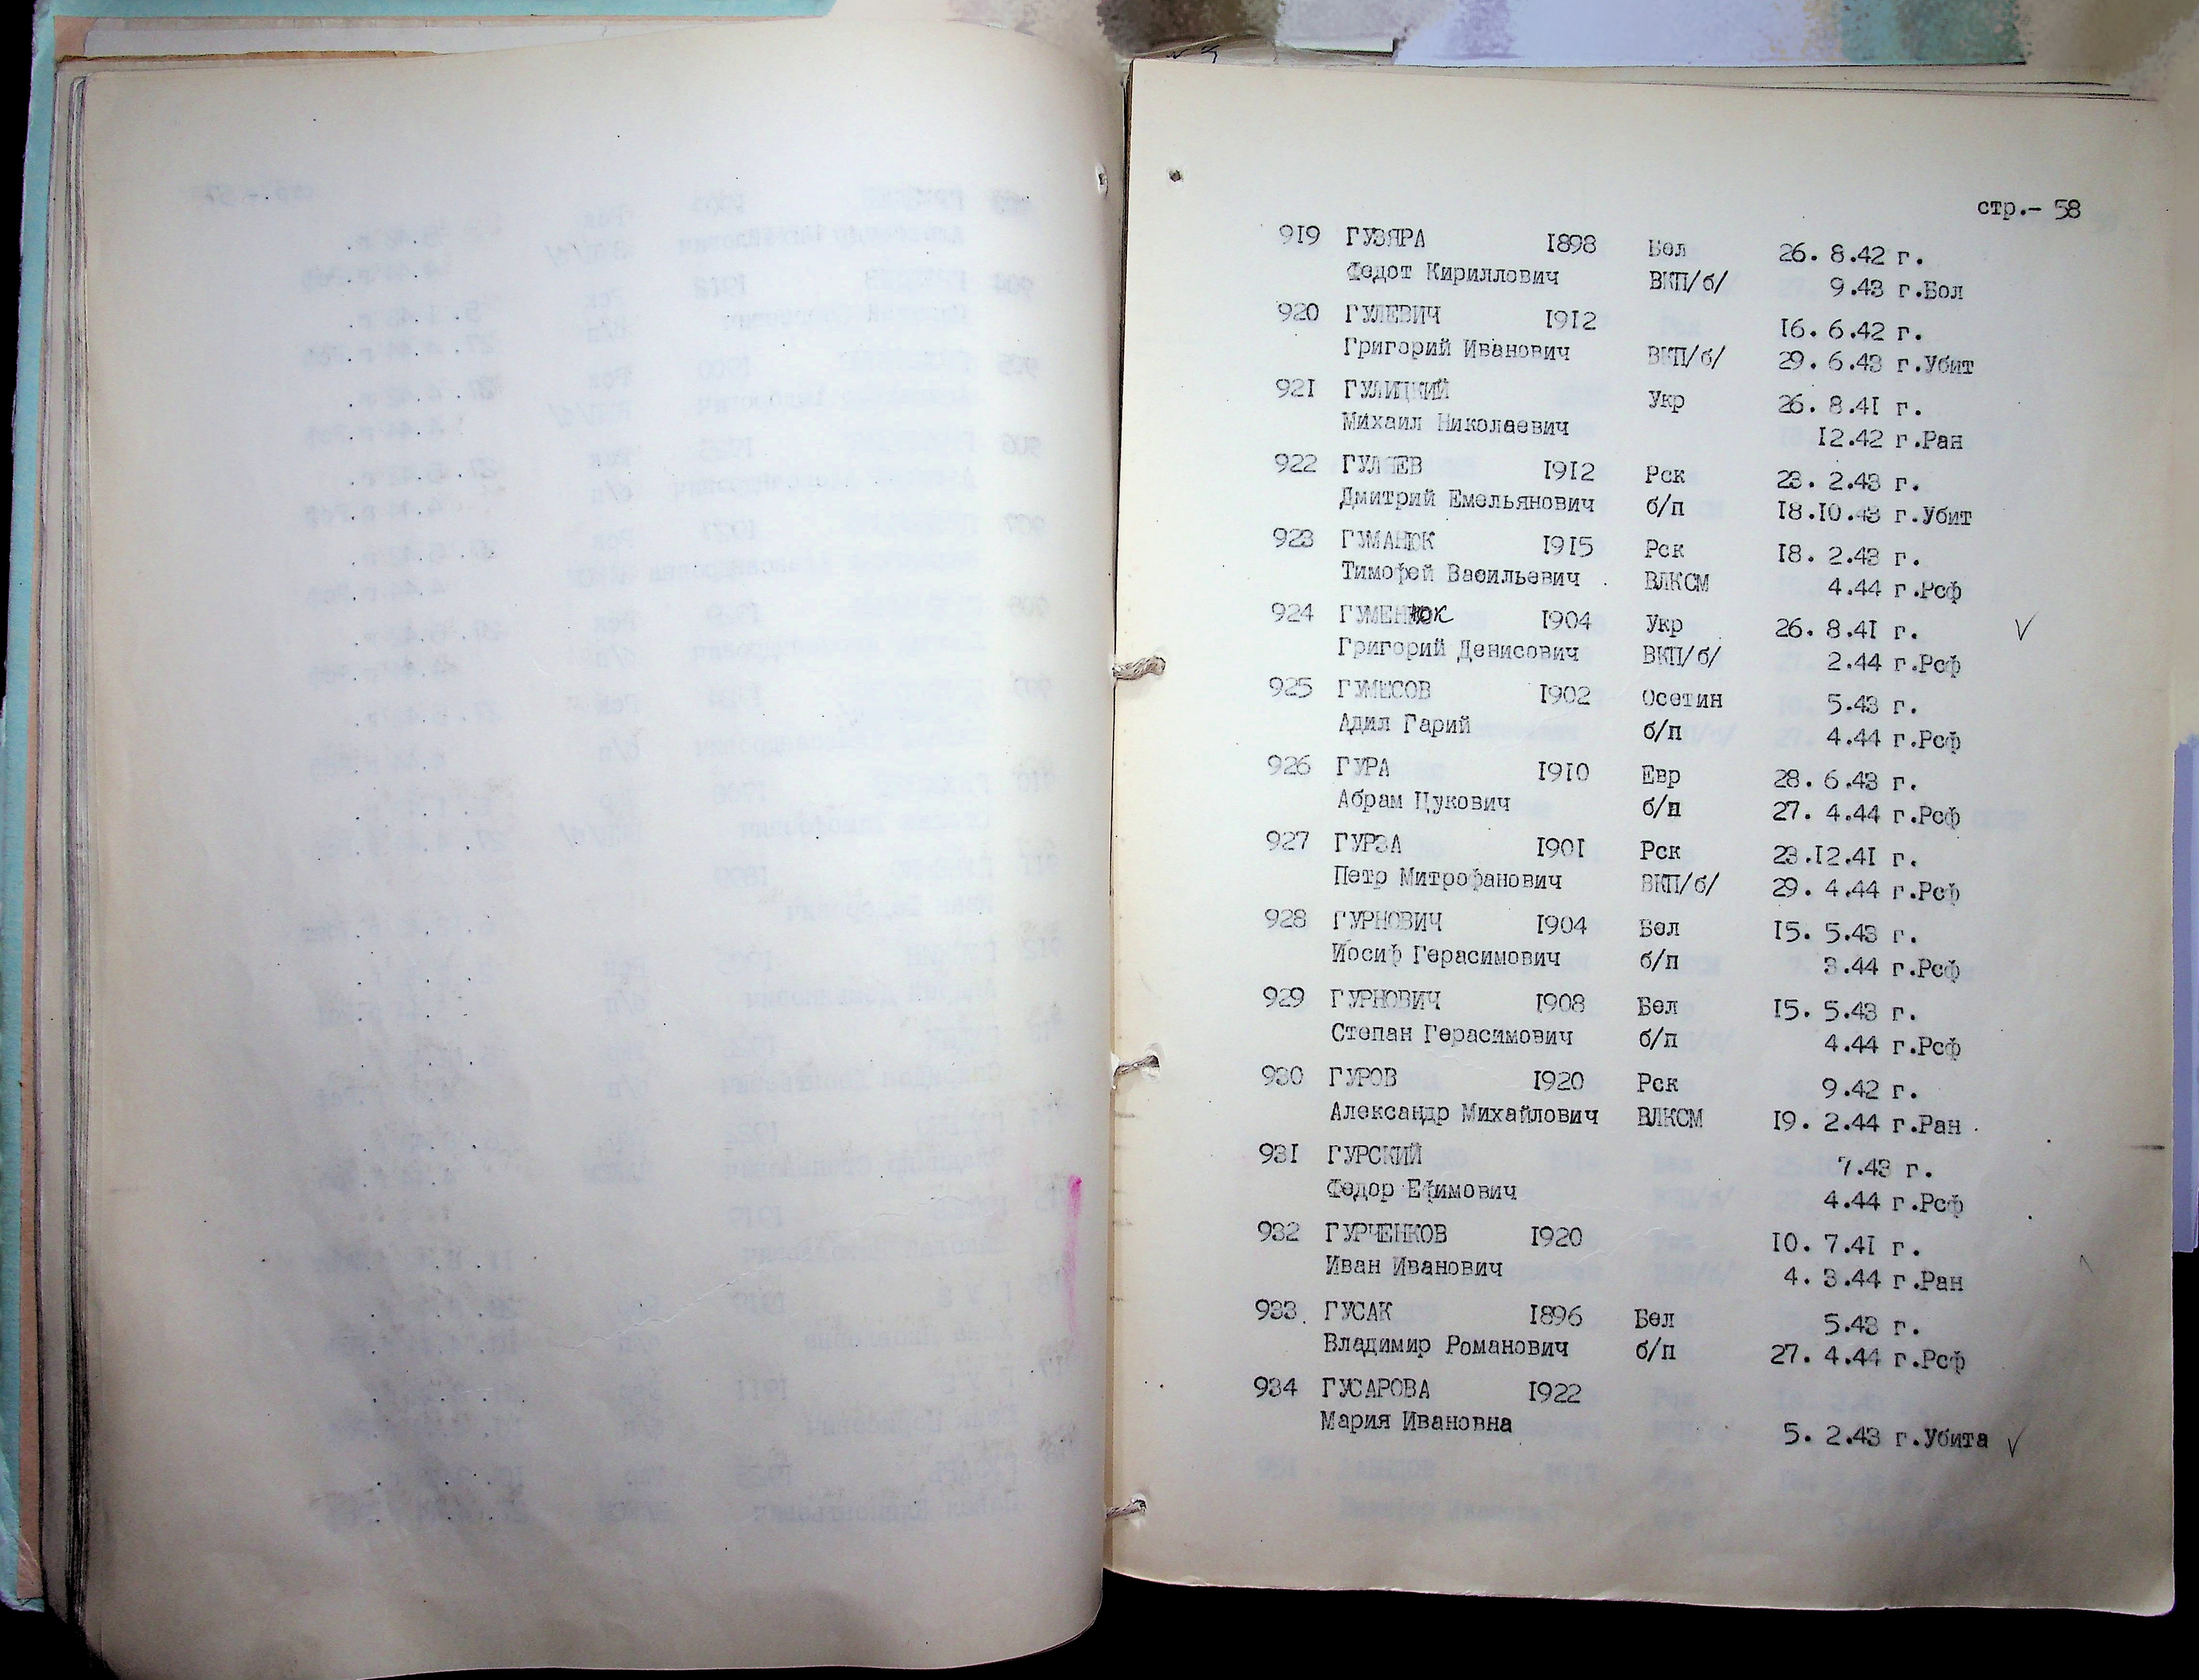 стр.- 58
919 ГУЗЯРА 1898 Бел 26. 8.42 г.
Федот Кириллович ВКП/б/ 9.43 г.Бол
920 ГУЛЕВИЧ 1912 16. 6.42 г.
Григорий Иванович ВКП/б/ 29. 6.43 г.Убит
921 ГУЛИЦКИЙ Укр 26. 8.41 г.
Михаил Николаевич 12.42 г.Ран
922 ГУЛЯЕВ 1912 Рск 23. 2.43 г.
Дмитрий Емельянович б/п 18.10.43 г.Убит
923 ГУМАНЮК 1915 Рск 18. 2.43 г.
Тимофей Васильевич ВЛКСМ 4.44 г.Рсф
924 ГУМЕНЮК 1904 Укр 26. 8.41 г.
Григорий Денисович ВКП/б/ 2.44 г.Рсф
925 ГУМЕСОВ 1902 Осетин 5.43 г.
Адил Гарий б/п 4.44 г.Рсф
926 ГУРА 1910 Евр 28. 6.43 г.
Абрам Цукович б/п 27. 4.44 г.Рсф
927 ГУРЗА 1901 Рск 23.12.41 г.
Петр Митрофанович ВКП/б/ 29. 4.44 г.Рсф
928 ГУРНОВИЧ 1904 Бел 15. 5.43 г.
Иосиф Герасимович б/п 3.44 г.Рсф
929 ГУРНОВИЧ 1908 Бел 15. 5.43 г.
Степан Герасимович б/п 4.44 г.Рсф
930 ГУРОВ 1920 Рск 9.42 г.
Александр Михайлович ВЛКСМ 19. 2.44 г.Ран
931 ГУРСКИЙ 7.43 г.
Федор Ефимович 4.44 г.Рсф
932 ГУРЧЕНКОВ 1920 10. 7.41 г.
Иван Иванович 4. 3.44 г.Ран
933. ГУСАК 1896 Бел 5.43 г.
Владимир Романович б/п 27. 4.44 г.Рсф
934 ГУСАРОВА 1922
Мария Ивановна 5. 2.43 г.Убита